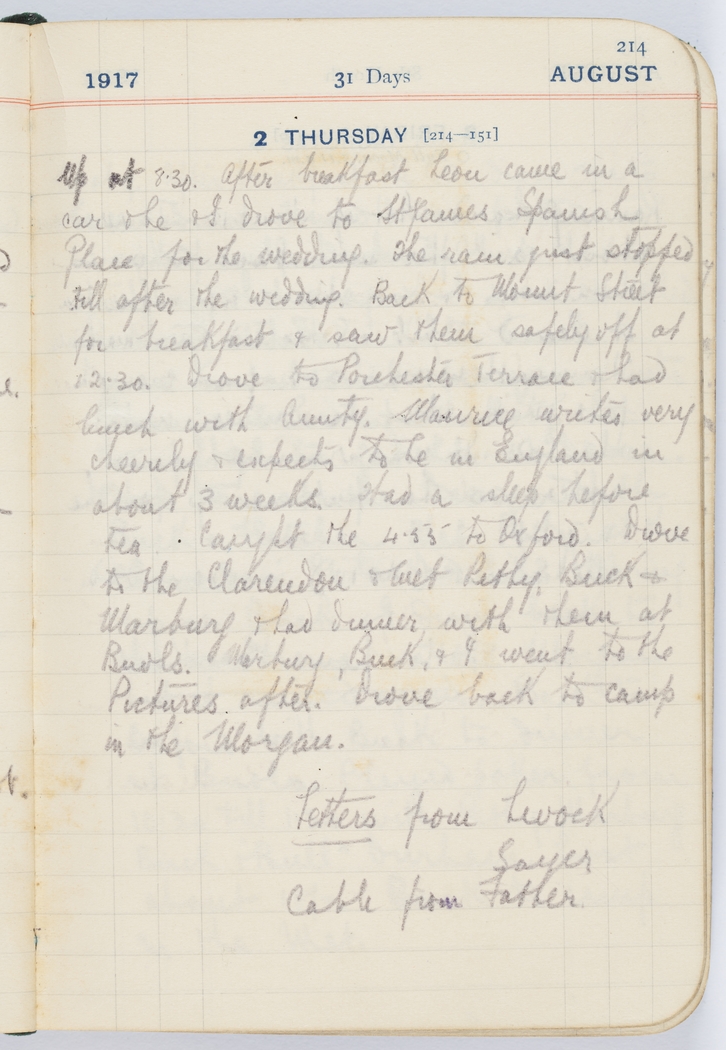 214
1917 31 Days AUGUST
2 THURSDAY [214—151]
Up at 8.30. After breakfast Leon came in a
car & he & I drove to St James Spanish
Place for the wedding. The rain just stopped
till after the wedding. Back to Mount Street
for breakfast & saw them safely off at
12.30. Drove to Porchester Terrace & had
lunch with Aunty. Maurice writes very
cheerily & expects to be in England in
about 3 weeks. Had a sleep before
tea. Caught the 4.55 to Oxford. Drove
to the Clarendon & met Buck &
Warburg & had dinner with them at
Buols. Warburg, Buck, & I went to the
Pictures after. Drove back to camp
in the Morgan.
Letters from
Sayer
Cable from Father.